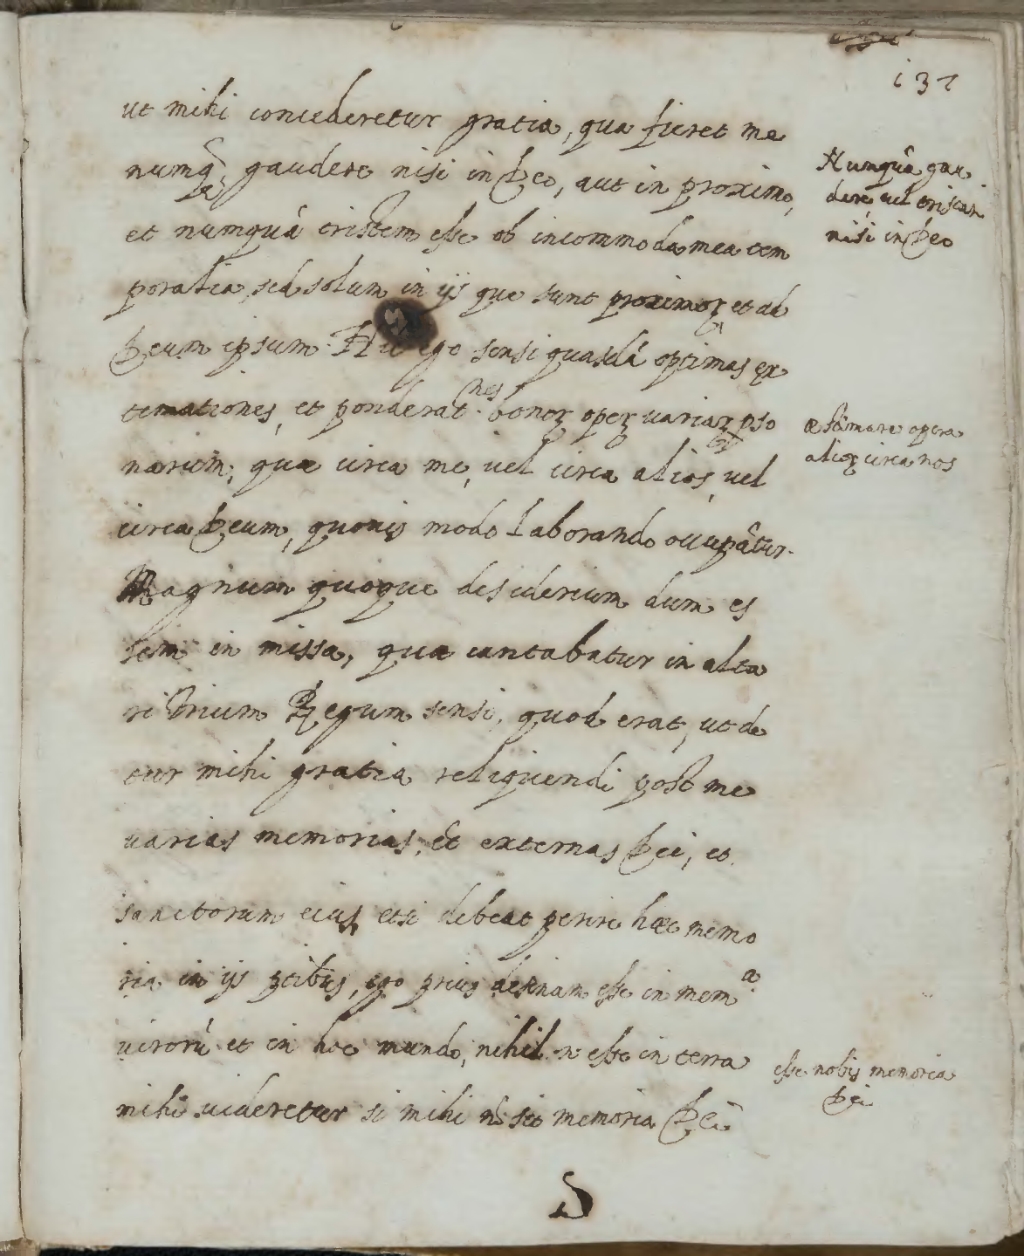 137
ut mihi concederetur gratia, qua fieret me
numq̃ gaudere nisi in Deo, aut in proximo,
et numquã tristem esse ob incommoda mea tem
poralia, sed solum in ijs que sunt proximoꝝ et ad
Deum ipsum. Hic ego sensi quasdã optimas ęx
timationes, et ponderat.nes bonoꝝ opeꝝ variaꝝ pso
narum; quæ circa me, vel circa alios, vel
circa Deum, quovis modo laborando occupãtur.
Magnum quoque desiderium dum es
sem in missa, quæ cantabatur in alta
ri Trium Regum sensi, quod erat, ut de
tur mihi gratia reliquendi post me
varias memorias, et externas Dei, et
sanctorum eius, etsi debeat perire hæc memo
ria in ijs ptibus, ego prius desinam esse in mem.a
virorũ et in hoc mundo, nihil n esse in terra
mihi videretur si mihi nõ sit memoria Dei
Numquã gau
dere, vel tristari
nisi in Deo
æstimare opera
alioꝝ circa nos
esse nobis memoria
Dei